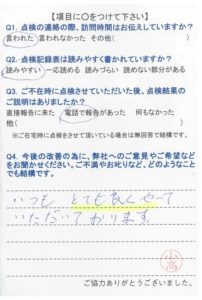 【項目に〇をつけて下さい】
Q1. 点検の連絡の際、訪問時間はお伝えしていますか?
言われた 言われなかった その他( )
Q2. 点検記録表は読みやすく書かれていますか?
読みやすい 一応読める 読みづらい 読めない部分がある
Q3. ご不在時に点検させていただいた後、点検結果の
ご説明はありましたか?
直接報告に来た 電話で報告があった 何もなかった
他( )
※ご在宅時に点検をさせて頂いている場合は無回答で結構です。
Q4. 今後の改善の為に、弊社へのご意見やご希望など
をお聞かせください。ご不満やお叱りなど、どのようなこと
でも結構です。
いつも とても良くやって
いただいております
小高
ご協力ありがとうございました。